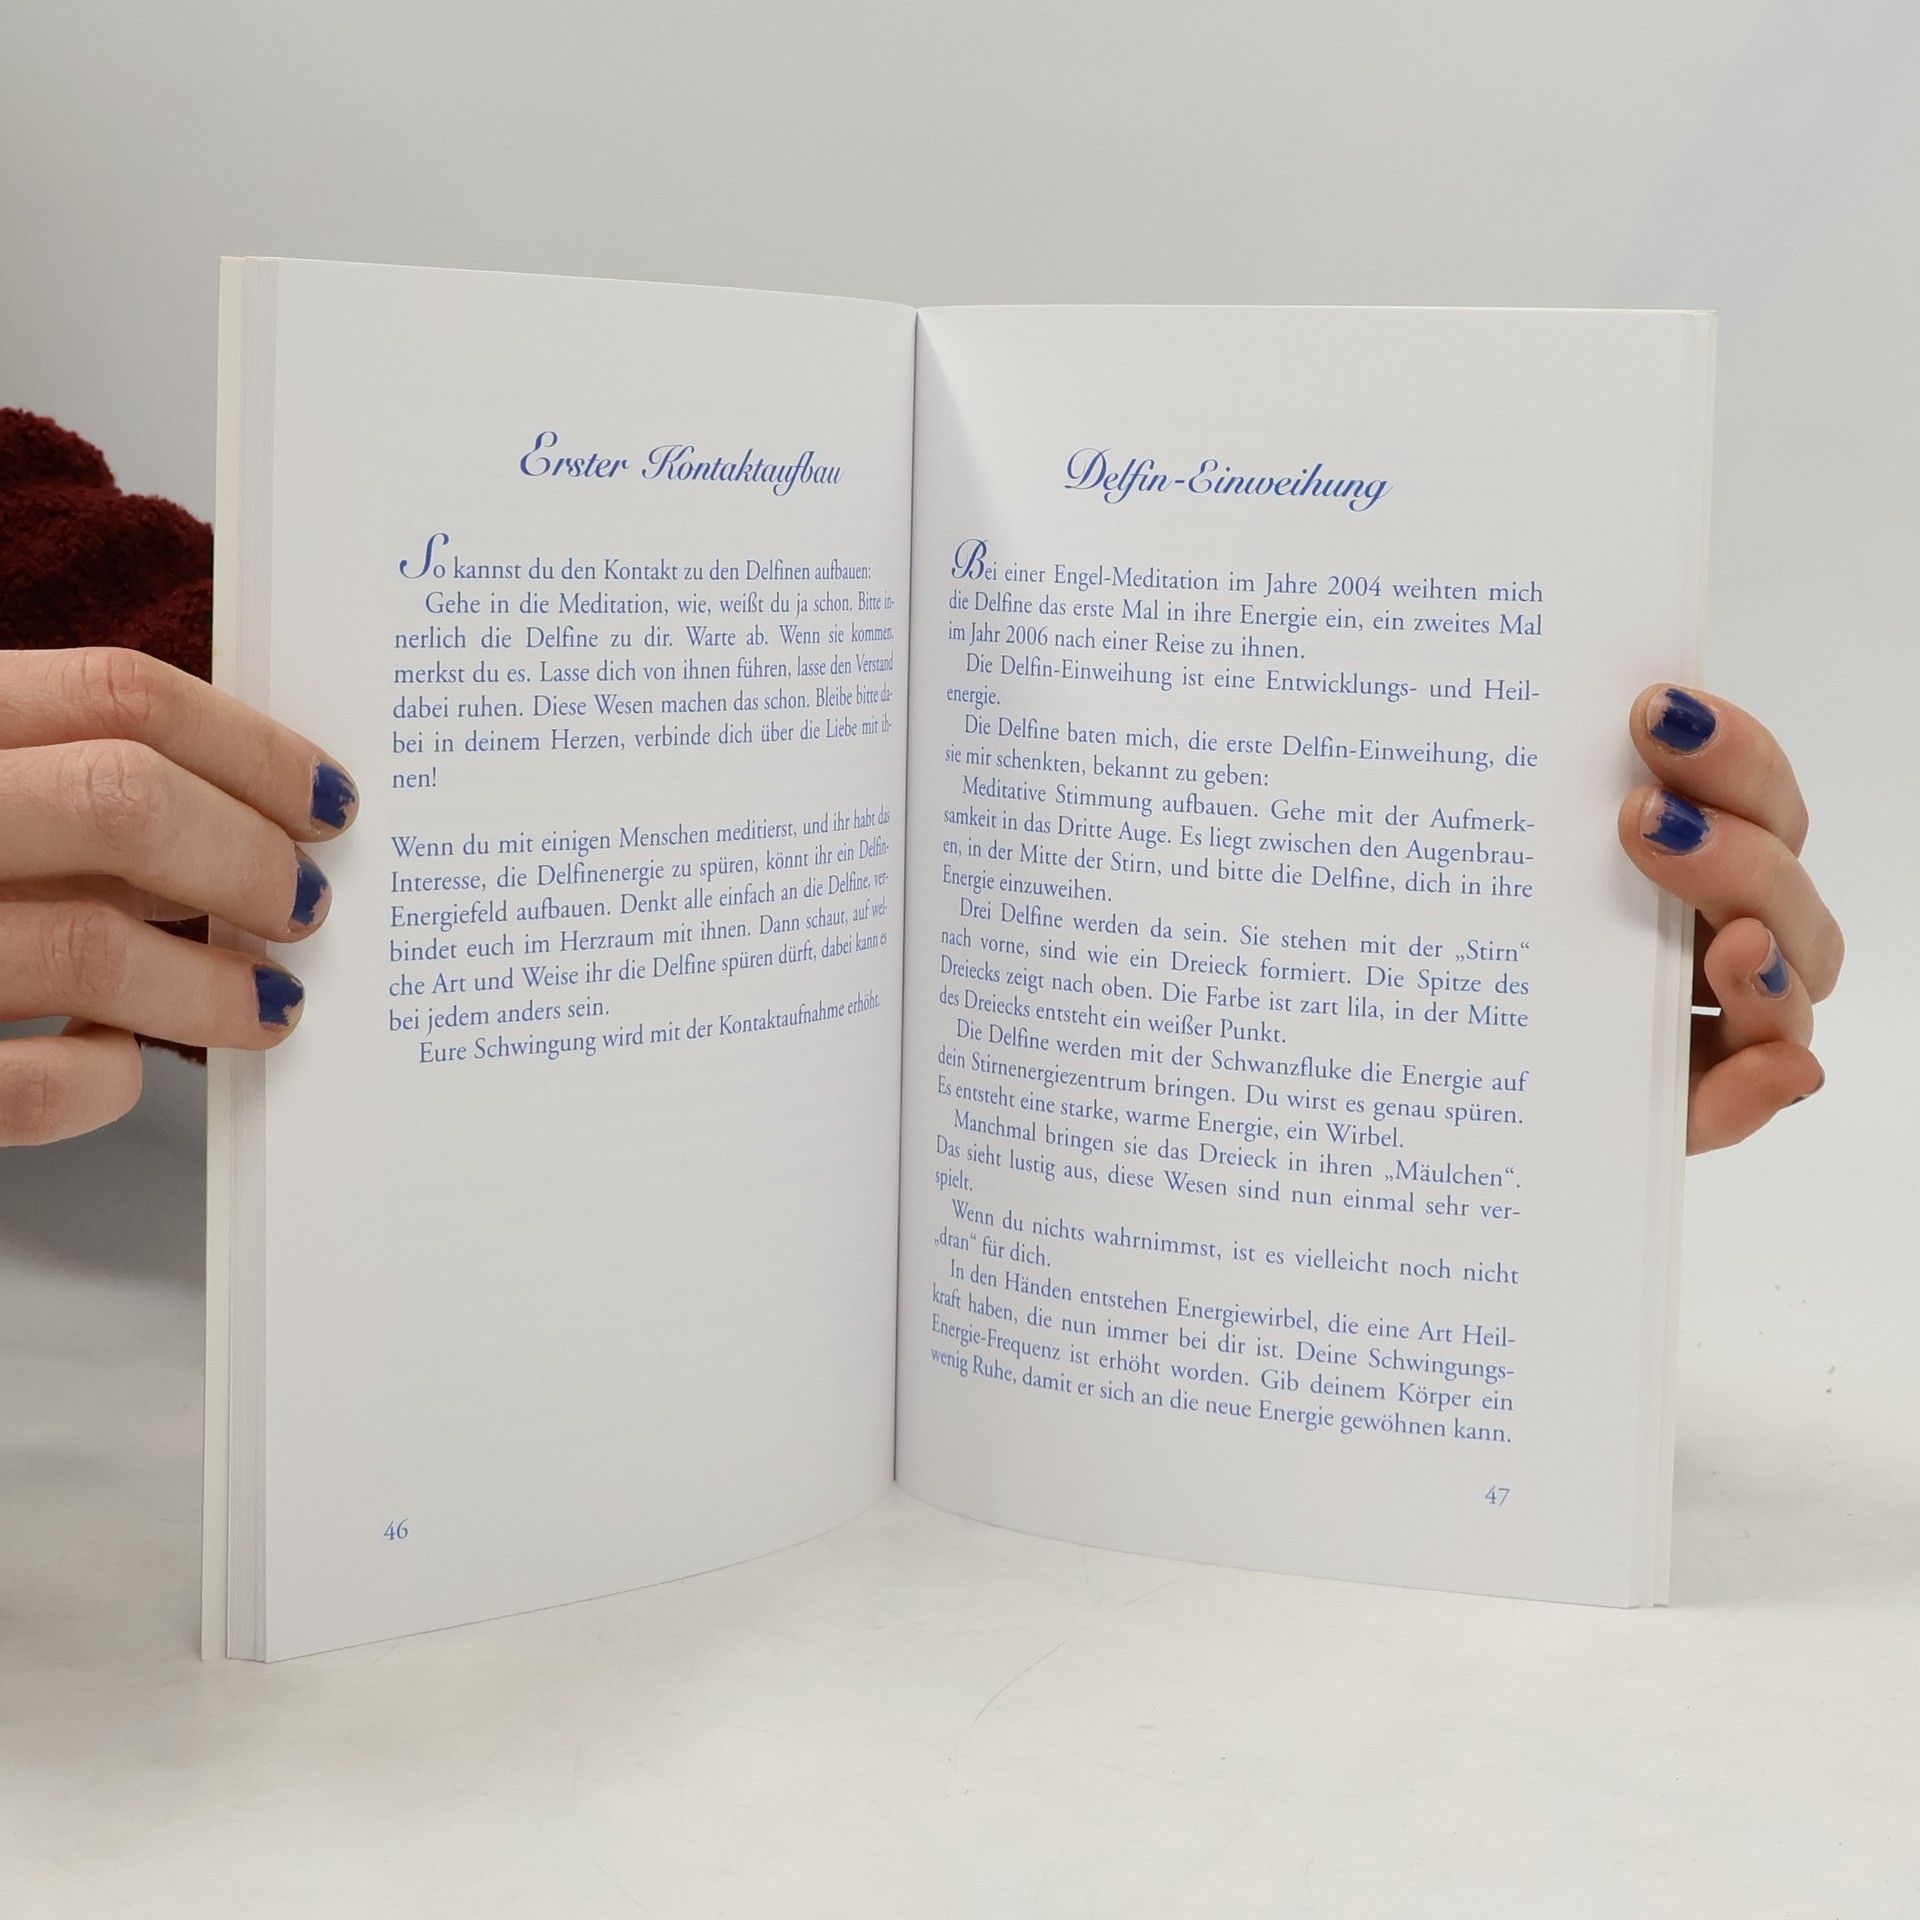 Erster Kontaktaufbau
So kannst du den Kontakt zu den Delfinen aufbauen:
Gehe in die Meditation, wie, weißt du ja schon. Bitte in-
nerlich die Delfine zu dir. Warte ab. Wenn sie kommen,
merkst du es. Lasse dich von ihnen führen, lasse den Verstand
dabei ruhen. Diese Wesen machen das schon. Bleibe bitte da-
bei in deinem Herzen, verbinde dich über die Liebe mit ih-
nen!
Wenn du mit einigen Menschen meditierst, und ihr habt das
Interesse, die Delfinenergie zu spüren, könnt ihr ein Delfin-
Energiefeld aufbauen. Denkt alle einfach an die Delfine, ver-
bindet euch im Herzraum mit ihnen. Dann schaut, auf wel-
che Art und Weise ihr die Delfine spüren dürft, dabei kann es
bei jedem anders sein.
Eure Schwingung wird mit der Kontaktaufnahme erhöht.
46
Delfin-Einweihung
Bei einer Engel-Meditation im Jahre 2004 weihten mich
die Delfine das erste Mal in ihre Energie ein, ein zweites Mal
im Jahr 2006 nach einer Reise zu ihnen.
Die Delfin-Einweihung ist eine Entwicklungs- und Heil-
energie.
Die Delfine baten mich, die erste Delfin-Einweihung, die
sie mir schenkten, bekannt zu geben:
Meditative Stimmung aufbauen. Gehe mit der Aufmerk-
samkeit in das Dritte Auge. Es liegt zwischen den Augenbrau-
en, in der Mitte der Stirn, und bitte die Delfine, dich in ihre
Energie einzuweihen.
Drei Delfine werden da sein. Sie stehen mit der „Stirn“
nach vorne, sind wie ein Dreieck formiert. Die Spitze des
Dreiecks zeigt nach oben. Die Farbe ist zart lila, in der Mitte
des Dreiecks entsteht ein weißer Punkt.
Die Delfine werden mit der Schwanzfluke die Energie auf
dein Stirnenergiezentrum bringen. Du wirst es genau spüren.
Es entsteht eine starke, warme Energie, ein Wirbel.
Manchmal bringen sie das Dreieck in ihren „Mäulchen“.
Das sieht lustig aus, diese Wesen sind nun einmal sehr ver-
spielt.
Wenn du nichts wahrnimmst, ist es vielleicht noch nicht
„dran“ für dich.
In den Händen entstehen Energiewirbel, die eine Art Heil-
kraft haben, die nun immer bei dir ist. Deine Schwingungs-
Energie-Frequenz ist erhöht worden. Gib deinem Körper ein
wenig Ruhe, damit er sich an die neue Energie gewöhnen kann.
47